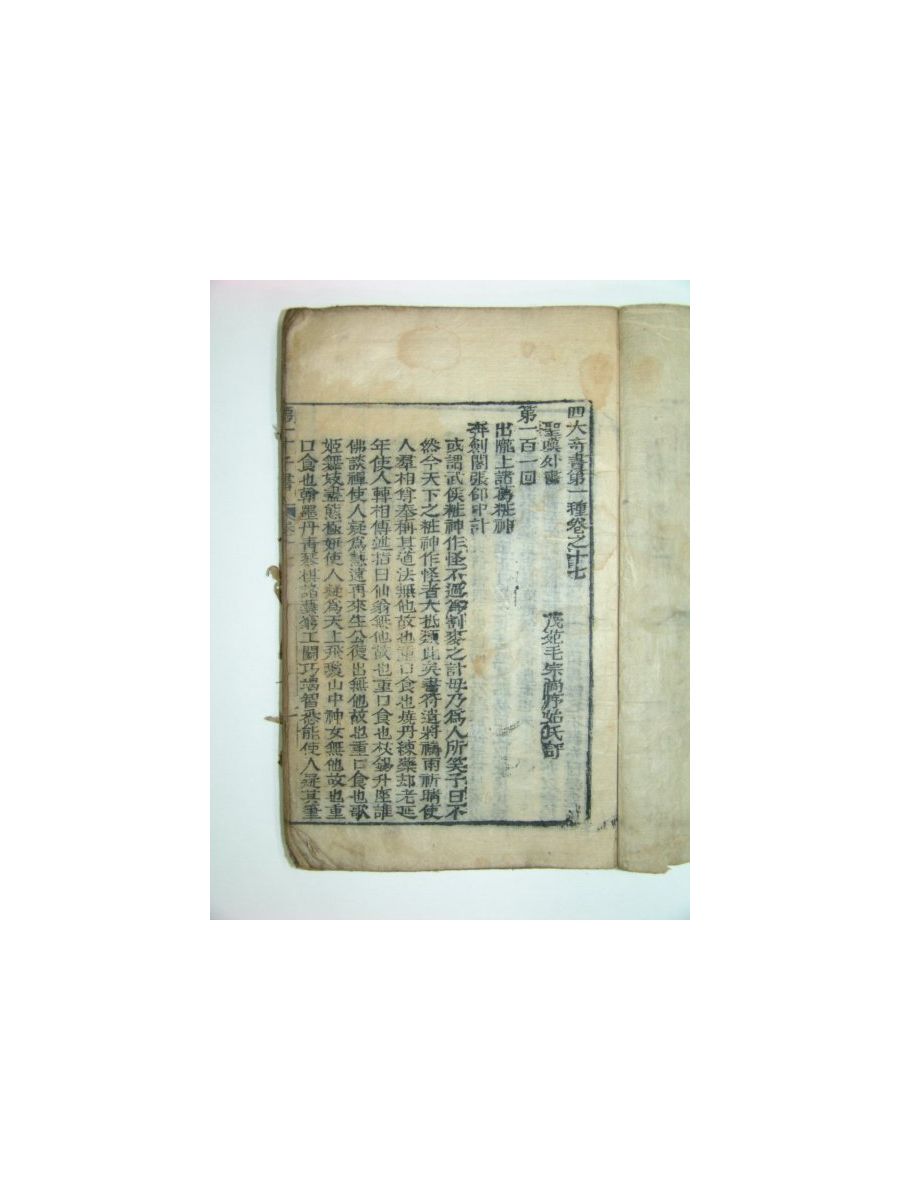 四大奇書第一種卷之十七
聖嘆外書
茂苑毛宗崗序始氏評
第一百一回
出隴上諸葛粧神
奔劍閣張郃中計
或謂武侯粧神作怪不過爲割麥之計毋乃爲人所笑予曰不
然今天下之粧神作怪者大抵類此矣書符遣將禱雨祈晴使
人羣相肯奉稱其道法無他故也重口食也燒丹練藥却老延
年使人轉相傳述指曰仙翁無他故也重口食也杖錫升座誰
佛談禪使人疑爲慧遠再來生公復出無他故也重口食也歌
姬舞妓盡態極妍使人疑爲天上飛瓊山中神女無他故也重
口食也翰墨丹青琴棋諸藝窮工鬪巧端智悉能使人疑其筆